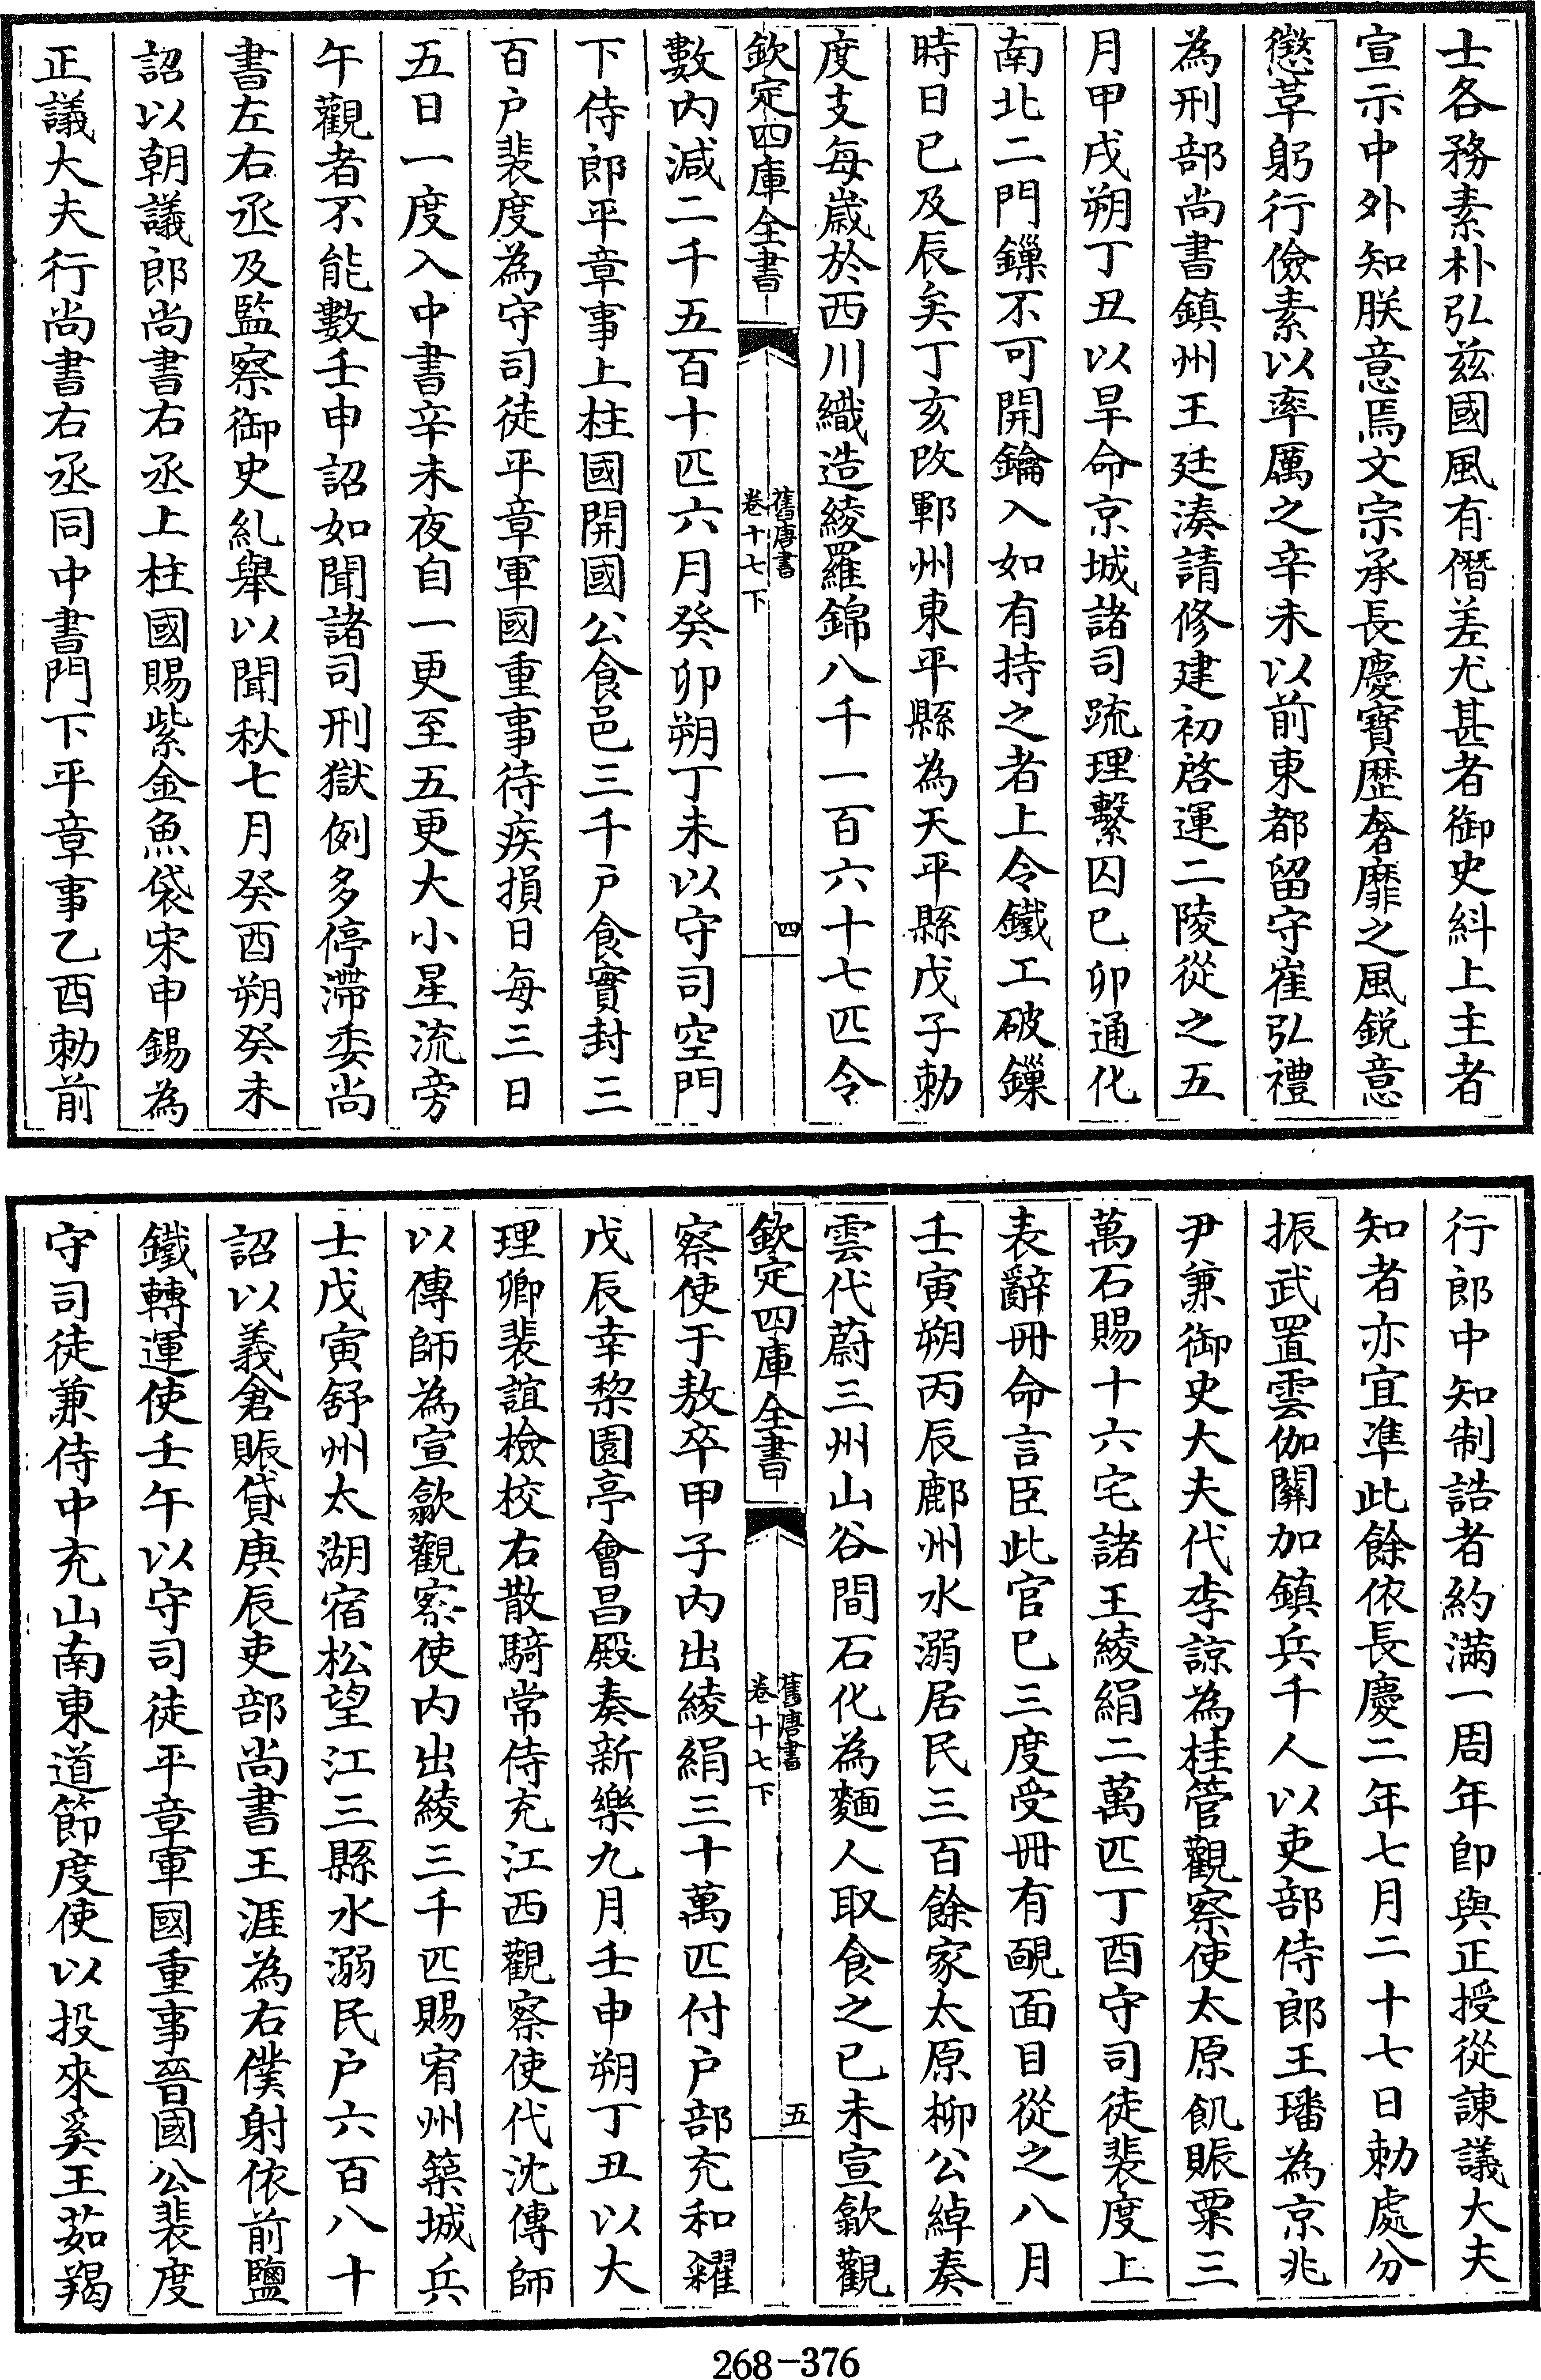 士各務素朴弘兹國風有僭差尤甚者御史糾上主者
宣示中外知朕意焉文宗承長慶寶歴奢靡之風鋭意
懲革躬行儉素以率厲之辛未以前東都留守崔弘禮
為刑部尚書鎮州王廷湊請修建初啓運二陵從之五
月甲戌朔丁丑以旱命京城諸司疏理繫囚已卯通化
南北二門鏁不可開鑰入如有持之者上令鐵工破鏁
時日已及辰矣丁亥改鄆州東平縣為天平縣戊子勅
度支每嵗於西川織造綾羅錦八千一百六十七匹令
欽定四庫全書
舊唐書
卷十七下
四
數内減二千五百十匹六月癸卯朔丁未以守司空門
下侍郎平章事上柱國開國公食邑三千户食實封三
百户裴度為守司徒平章軍國重事待疾損日每三日
五日一度入中書辛未夜自一更至五更大小星流旁
午觀者不能數壬申詔如聞諸司刑獄例多停滯委尚
書左右丞及監察御史糺舉以聞秋七月癸酉朔癸未
詔以朝議郎尚書右丞上柱國賜紫金魚袋宋申錫為
正議大夫行尚書右丞同中書門下平章事乙酉勅前
行郎中知制誥者約滿一周年即與正授從諫議大夫
知者亦宜準此餘依長慶二年七月二十七日勅處分
振武置雲伽關加鎮兵千人以吏部侍郎王璠為京兆
尹兼御史大夫代李諒為桂管觀察使太原飢賑粟三
萬石賜十六宅諸王綾絹二萬匹丁酉守司徒裴度上
表辭冊命言臣此官已三度受冊有靦面目從之八月
壬寅朔丙辰鄜州水溺居民三百餘家太原柳公綽奏
雲代蔚三州山谷間石化為麵人取食之已未宣歙觀
欽定四庫全書
舊唐書
卷十七下
五
察使于敖卒甲子内出綾絹三十萬匹付户部充和糴
戊辰幸棃園亭會昌殿奏新樂九月壬申朔丁丑以大
理卿裴誼檢校右散騎常侍充江西觀察使代沈傳師
以傳師為宣歙觀察使内出綾三千匹賜宥州築城兵
士戊寅舒州太湖宿松望江三縣水溺民户六百八十
詔以義倉賑貸庚辰吏部尚書王涯為右僕射依前鹽
鐵轉運使壬午以守司徒平章軍國重事晉國公裴度
守司徒兼侍中充山南東道節度使以投來奚王茹羯
268-376